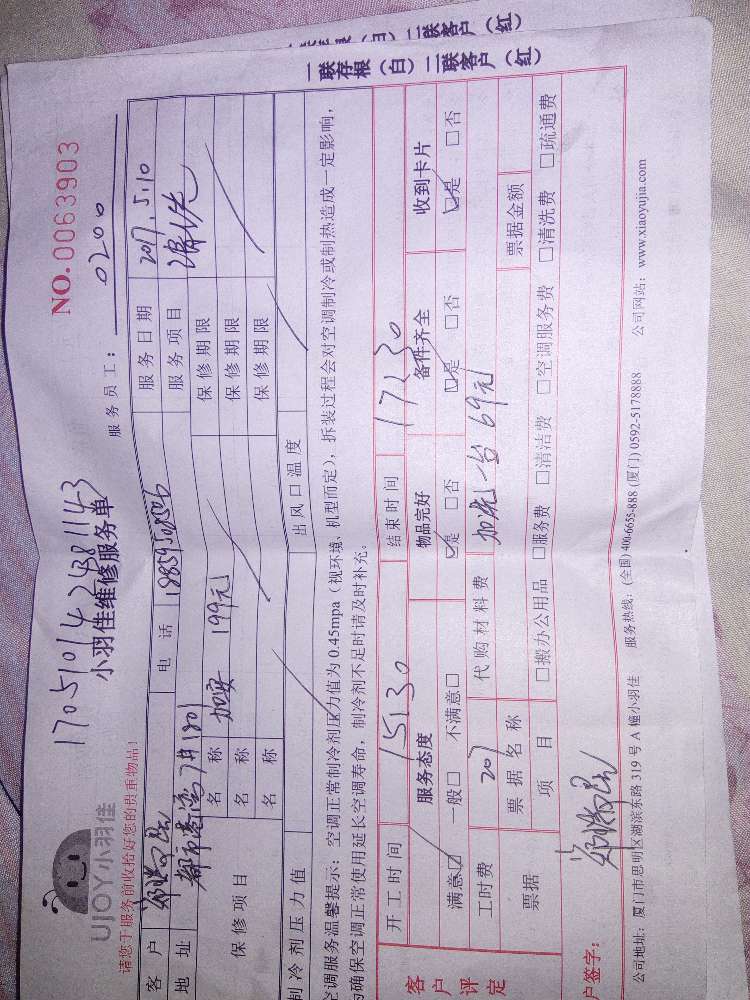 一联存根（白）二联客户（红）
一联存根（白）二联客户（红）
NO.0063903
1705101424381143
UJOY小羽佳
小羽佳维修服务单
服务员工： 0200
请您于服务前收拾好您的贵重物品！
客 户 电 话 18859308506 服务日期 2017.5.10
地 址 都市港湾7#1801 服务项目 清洗
保修项目 名 称 加安 199元 保修期限
名 称 保修期限
名 称 保修期限
制冷剂压力值 出风口温度
空调服务温馨提示：空调正常制冷剂压力值为0.45mpa（视环境、机型而定），拆装过程会对空调制冷或制热造成一定影响，
为确保空调正常使用延长空调寿命，制冷剂不足时请及时补充。
开工时间 15:30 结束时间 17:30
客户评定 服务态度 物品完好 备件齐全 收到卡片
满意☑ 一般□ 不满意□ ☑是 □否 ☑是 □否 ☑是 □否
工时费 207 代购材料费 加洗一台69元
票据 票据名称 票据金额
项 目 □搬办公用品 □服务费 □清洁费 □空调服务费 □清洗费 □疏通费
户签字：
公司地址：厦门市思明区湖滨东路319号A幢小羽佳 服务热线：(全国) 400-6655-888 (厦门) 0592-5178888 公司网站：www.xiaoyujia.com